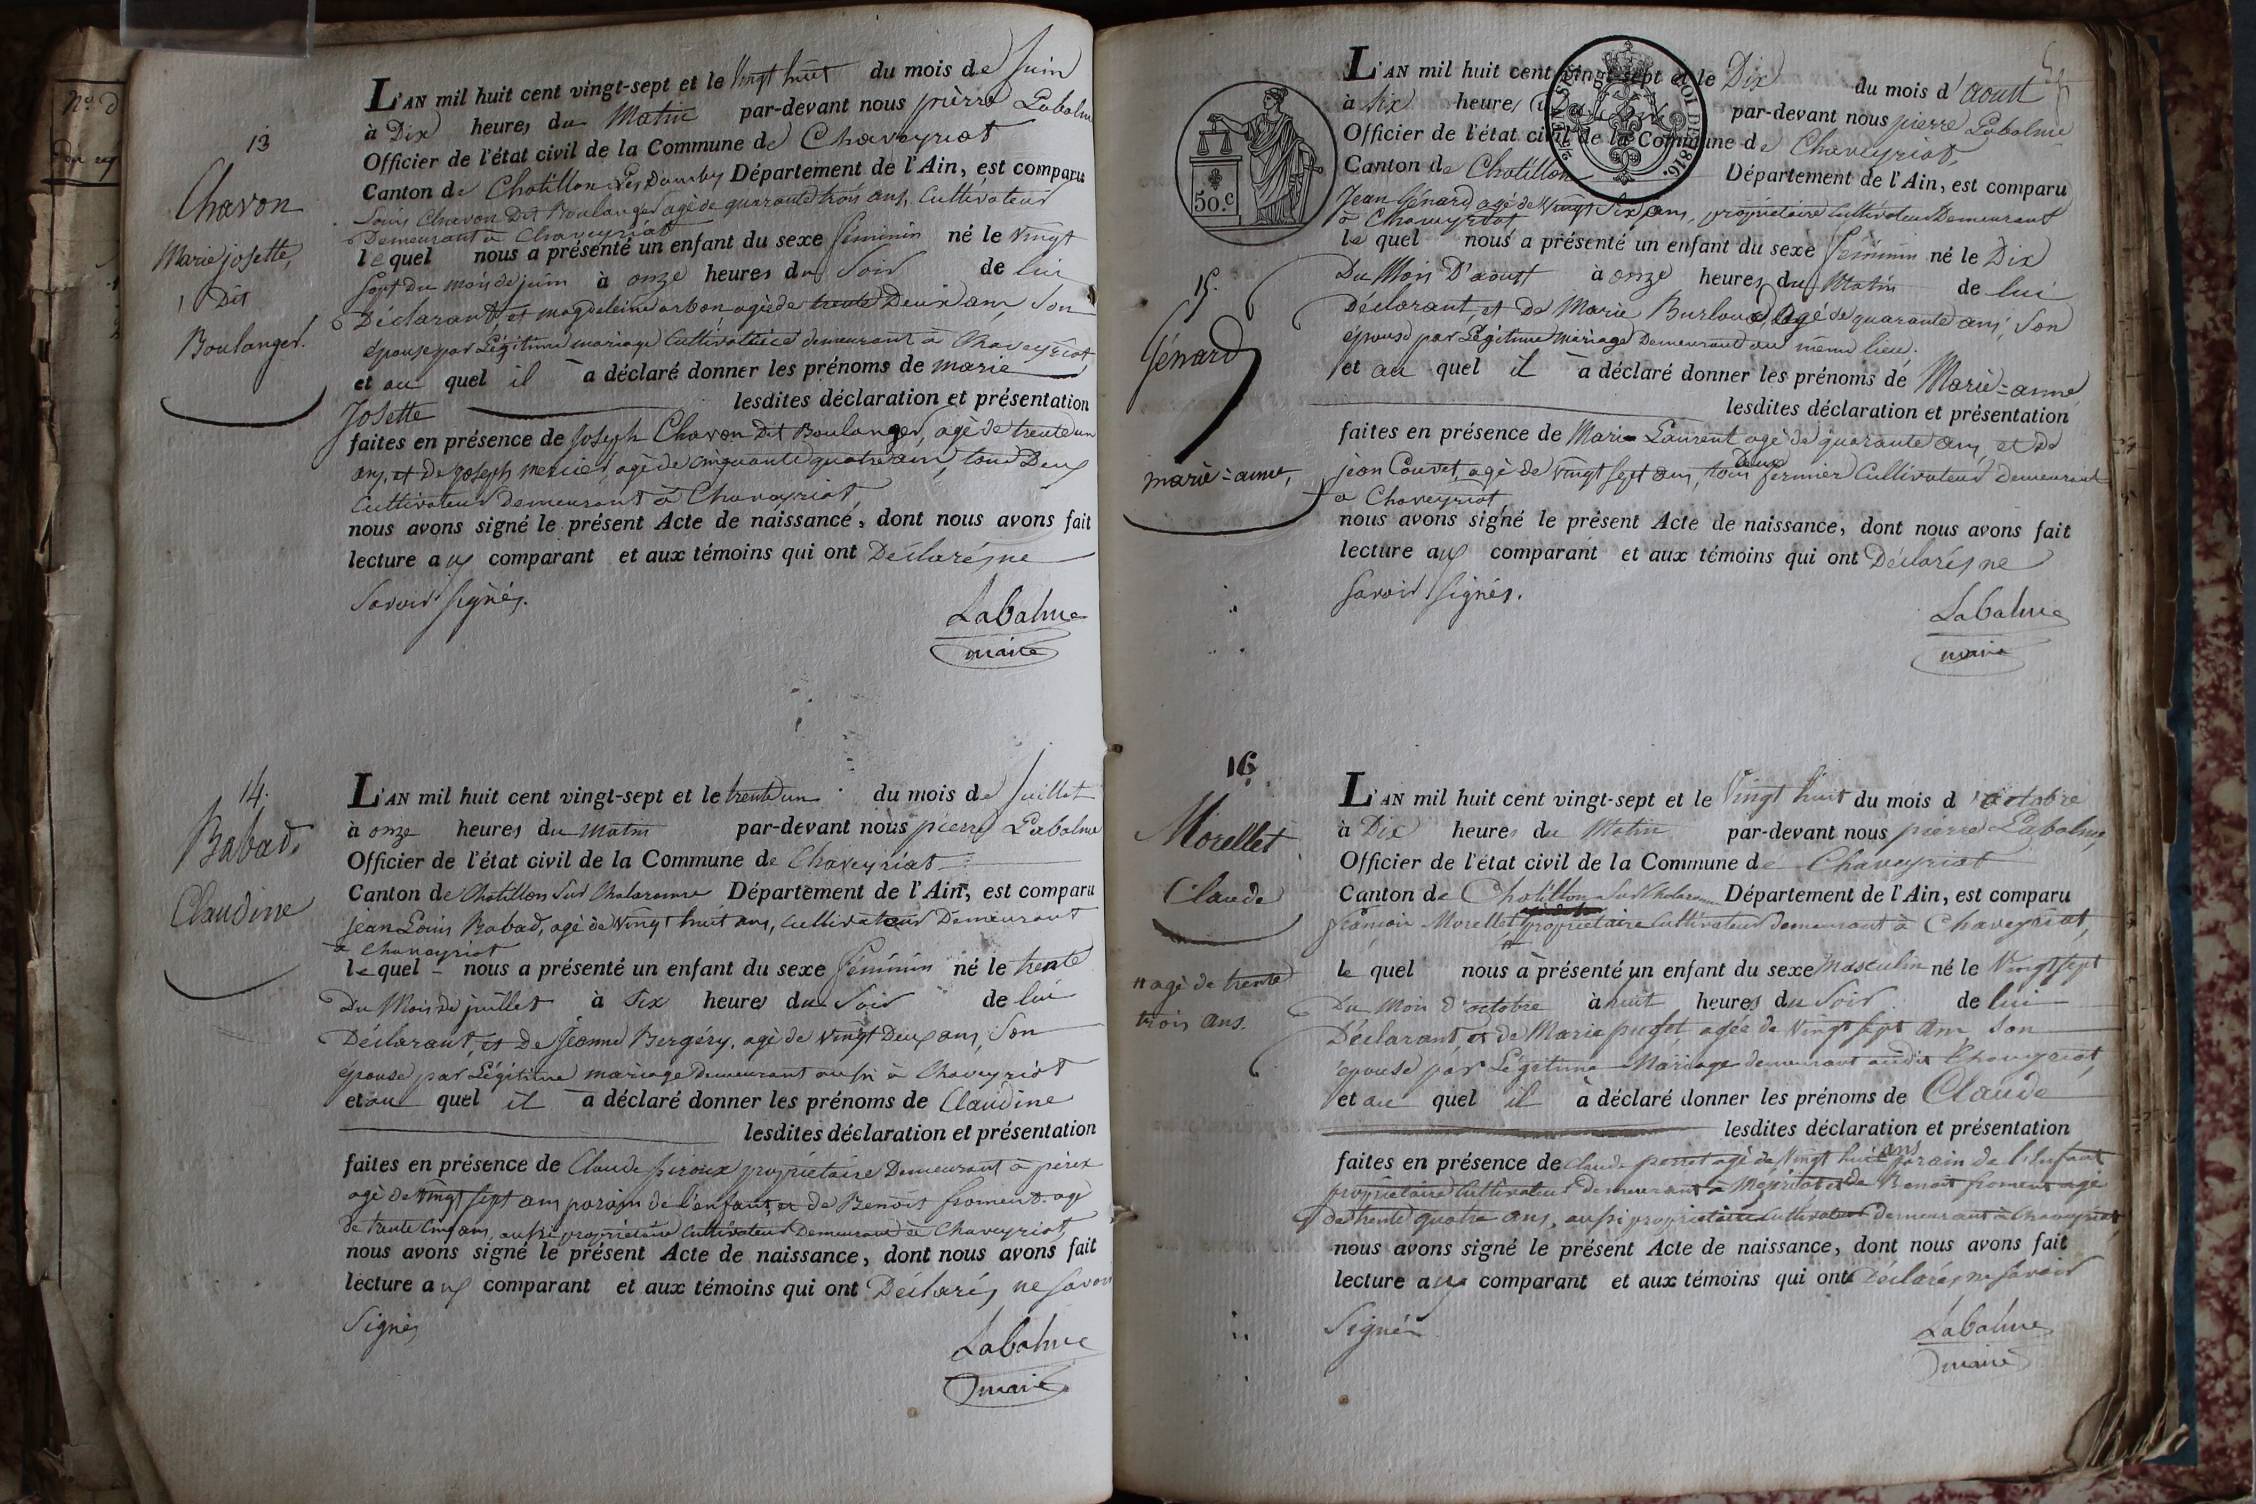 13
Chavon
Marie josette,
Dit
Boulanger.
L'AN mil huit cent vingt-sept et le Vingt huit du mois de Juin
à Dix heures du Matin par-devant nous pierre Labalme
Officier de l'état civil de la Commune de Chaveyriat
Canton de Chatillon Les Dombes Département de l'Ain, est comparu
Louis Chavon Dit Boulanger agé de quarante trois ans, Cultivateur
Demeurant à Chaveyriat
lequel nous a présenté un enfant du sexe féminin né le Vingt
Sept Du mois de juin à onze heures du Soir de lui
Déclarant, et magdeleine arbon agée de trente Deux ans, Son
épouse par Légitime mariage Cultivatrice demeurant à Chaveyriat
et au quel il a déclaré donner les prénoms de marie
Josette lesdites déclaration et présentation
faites en présence de Joseph Chavon Dit Boulanger, agé de trente un
ans, et De joseph mercier, agé de cinquante quatre ans, tous Deux
Cultivateur Demeurant à Chaveyriat,
nous avons signé le présent Acte de naissance, dont nous avons fait
lecture aux comparant et aux témoins qui ont Déclarés ne
Savoir Signés.
Labalme
maire
14.
Babad,
Claudine
L'AN mil huit cent vingt-sept et le trente un du mois de Juillet
à onze heures du Matin par-devant nous pierre Labalme
Officier de l'état civil de la Commune de Chaveyriat
Canton de Chatillon Sur Chalaronne Département de l'Ain, est comparu
jean Louis Babad, agé de Vingt huit ans, Cultivateur Demeurant
à Chaveyriat
lequel nous a présenté un enfant du sexe féminin né le trente
Du Mois de juillet à Six heures du Soir de lui
Déclarant, et De Jeanne Bergéry, agé de Vingt Deux ans, Son
épouse par Légitime mariage Demeurant aussi à Chaveyriat
et au quel il a déclaré donner les prénoms de Claudine
lesdites déclaration et présentation
faites en présence de Claude piroux propriétaire Demeurant à pérex
agé de Vingt sept ans parain de l'enfant, et de Benoit froment agé
de trente Cinq ans, aussi propriétaire Cultivateur Demeurant à Chaveyriat
nous avons signé le présent Acte de naissance, dont nous avons fait
lecture aux comparant et aux témoins qui ont Déclarés ne Savoir
Signés
Labalme
maire
50.c
TIMBRE
LOI DE 1816.
15.
Génard
marie=anne,
L'AN mil huit cent vingt-sept et le Dix du mois d'aoust
à Six heures du par-devant nous pierre Labalme
Officier de l'état civil de la Commune de Chaveyriat,
Canton de Chatillon Département de l'Ain, est comparu
Jean Génard, agé de Vingt Six ans, propriétaire Cultivateur Demeurant
à Chaveyriat
le quel nous a présenté un enfant du sexe féminin né le Dix
Du Mois D'aoust à onze heures du Matin de lui
Déclarant, et De Marie Burloud, agé de quarante ans, Son
épouse par Légitime Mariage Demeurant au même lieu.
et au quel il a déclaré donner les prénoms de Marie=anne
lesdites déclaration et présentation
faites en présence de Marie Laurent agé de quarante ans, et De
jean Couvet, agé de Vingt Sept ans, tous Deux fermier Cultivateur Demeurant
à Chaveyriat
nous avons signé le présent Acte de naissance, dont nous avons fait
lecture aux comparant et aux témoins qui ont Déclarés ne
Savoir Signés.
Labalme
maire
16
Morellet
Claude
# agé de trente
trois ans.
L'AN mil huit cent vingt-sept et le Vingt huit du mois d'octobre
à Dix heures du Matin par-devant nous pierre Labalme,
Officier de l'état civil de la Commune de Chaveyriat
Canton de Chatillon Sur Chalaronne Département de l'Ain, est comparu
françois Morellet # propriétaire Cultivateur demeurant à Chaveyriat,
le quel nous a présenté un enfant du sexe Masculin né le Vingt sept
Du Mois d'octobre à huit heures du Soir de lui
Déclarant, et de Marie puget, agée de Vingt sept ans, Son
épouse par Légitime Mariage demeurant audit Chaveyriat,
et au quel il a déclaré donner les prénoms de Claude
lesdites déclaration et présentation
faites en présence de Claude perret agé de Vingt huit ans parain de l'Enfant
propriétaire Cultivateur demeurant à Mépillat et de Benoit froment agé
de trente quatre ans, aussi propriétaire Cultivateur demeurant à Chaveyriat,
nous avons signé le présent Acte de naissance, dont nous avons fait
lecture aux comparant et aux témoins qui ont Déclarés ne Savoir
Signés
Labalme
maire